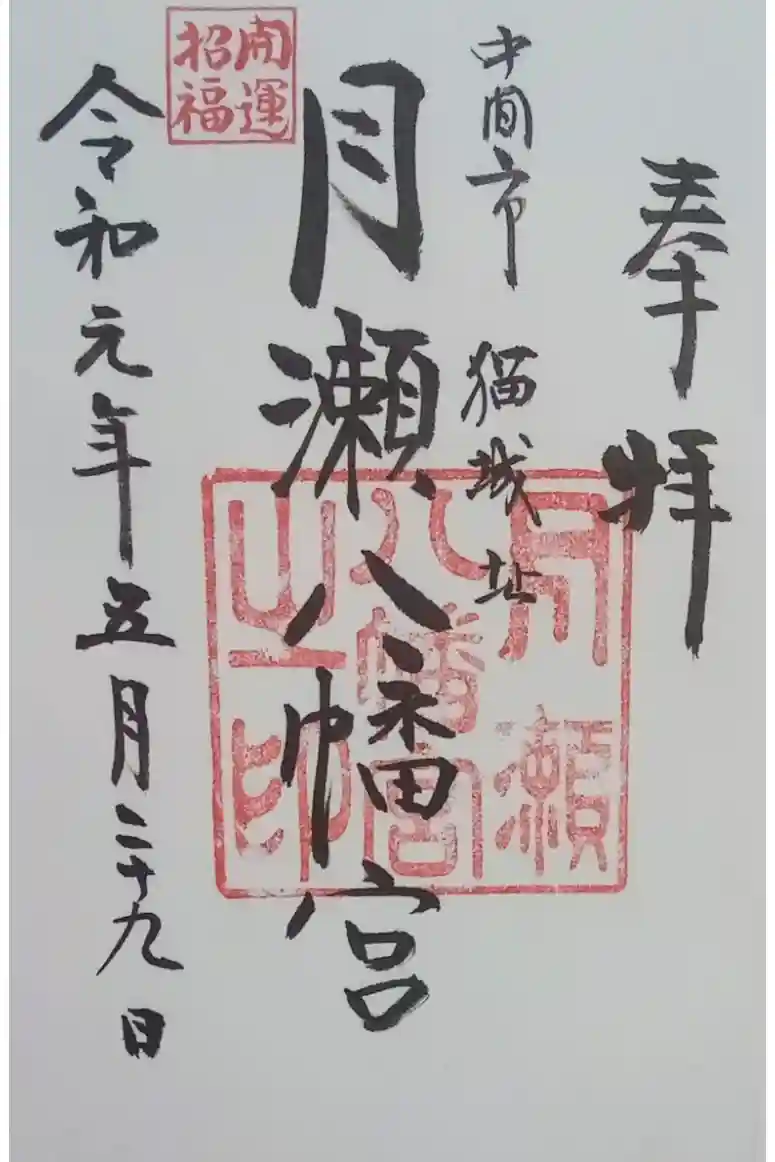 奉拝
中間市 猫城址
月瀬八幡宮
開運
招福
令和元年五月二十九日
月瀬
八幡宮
之印